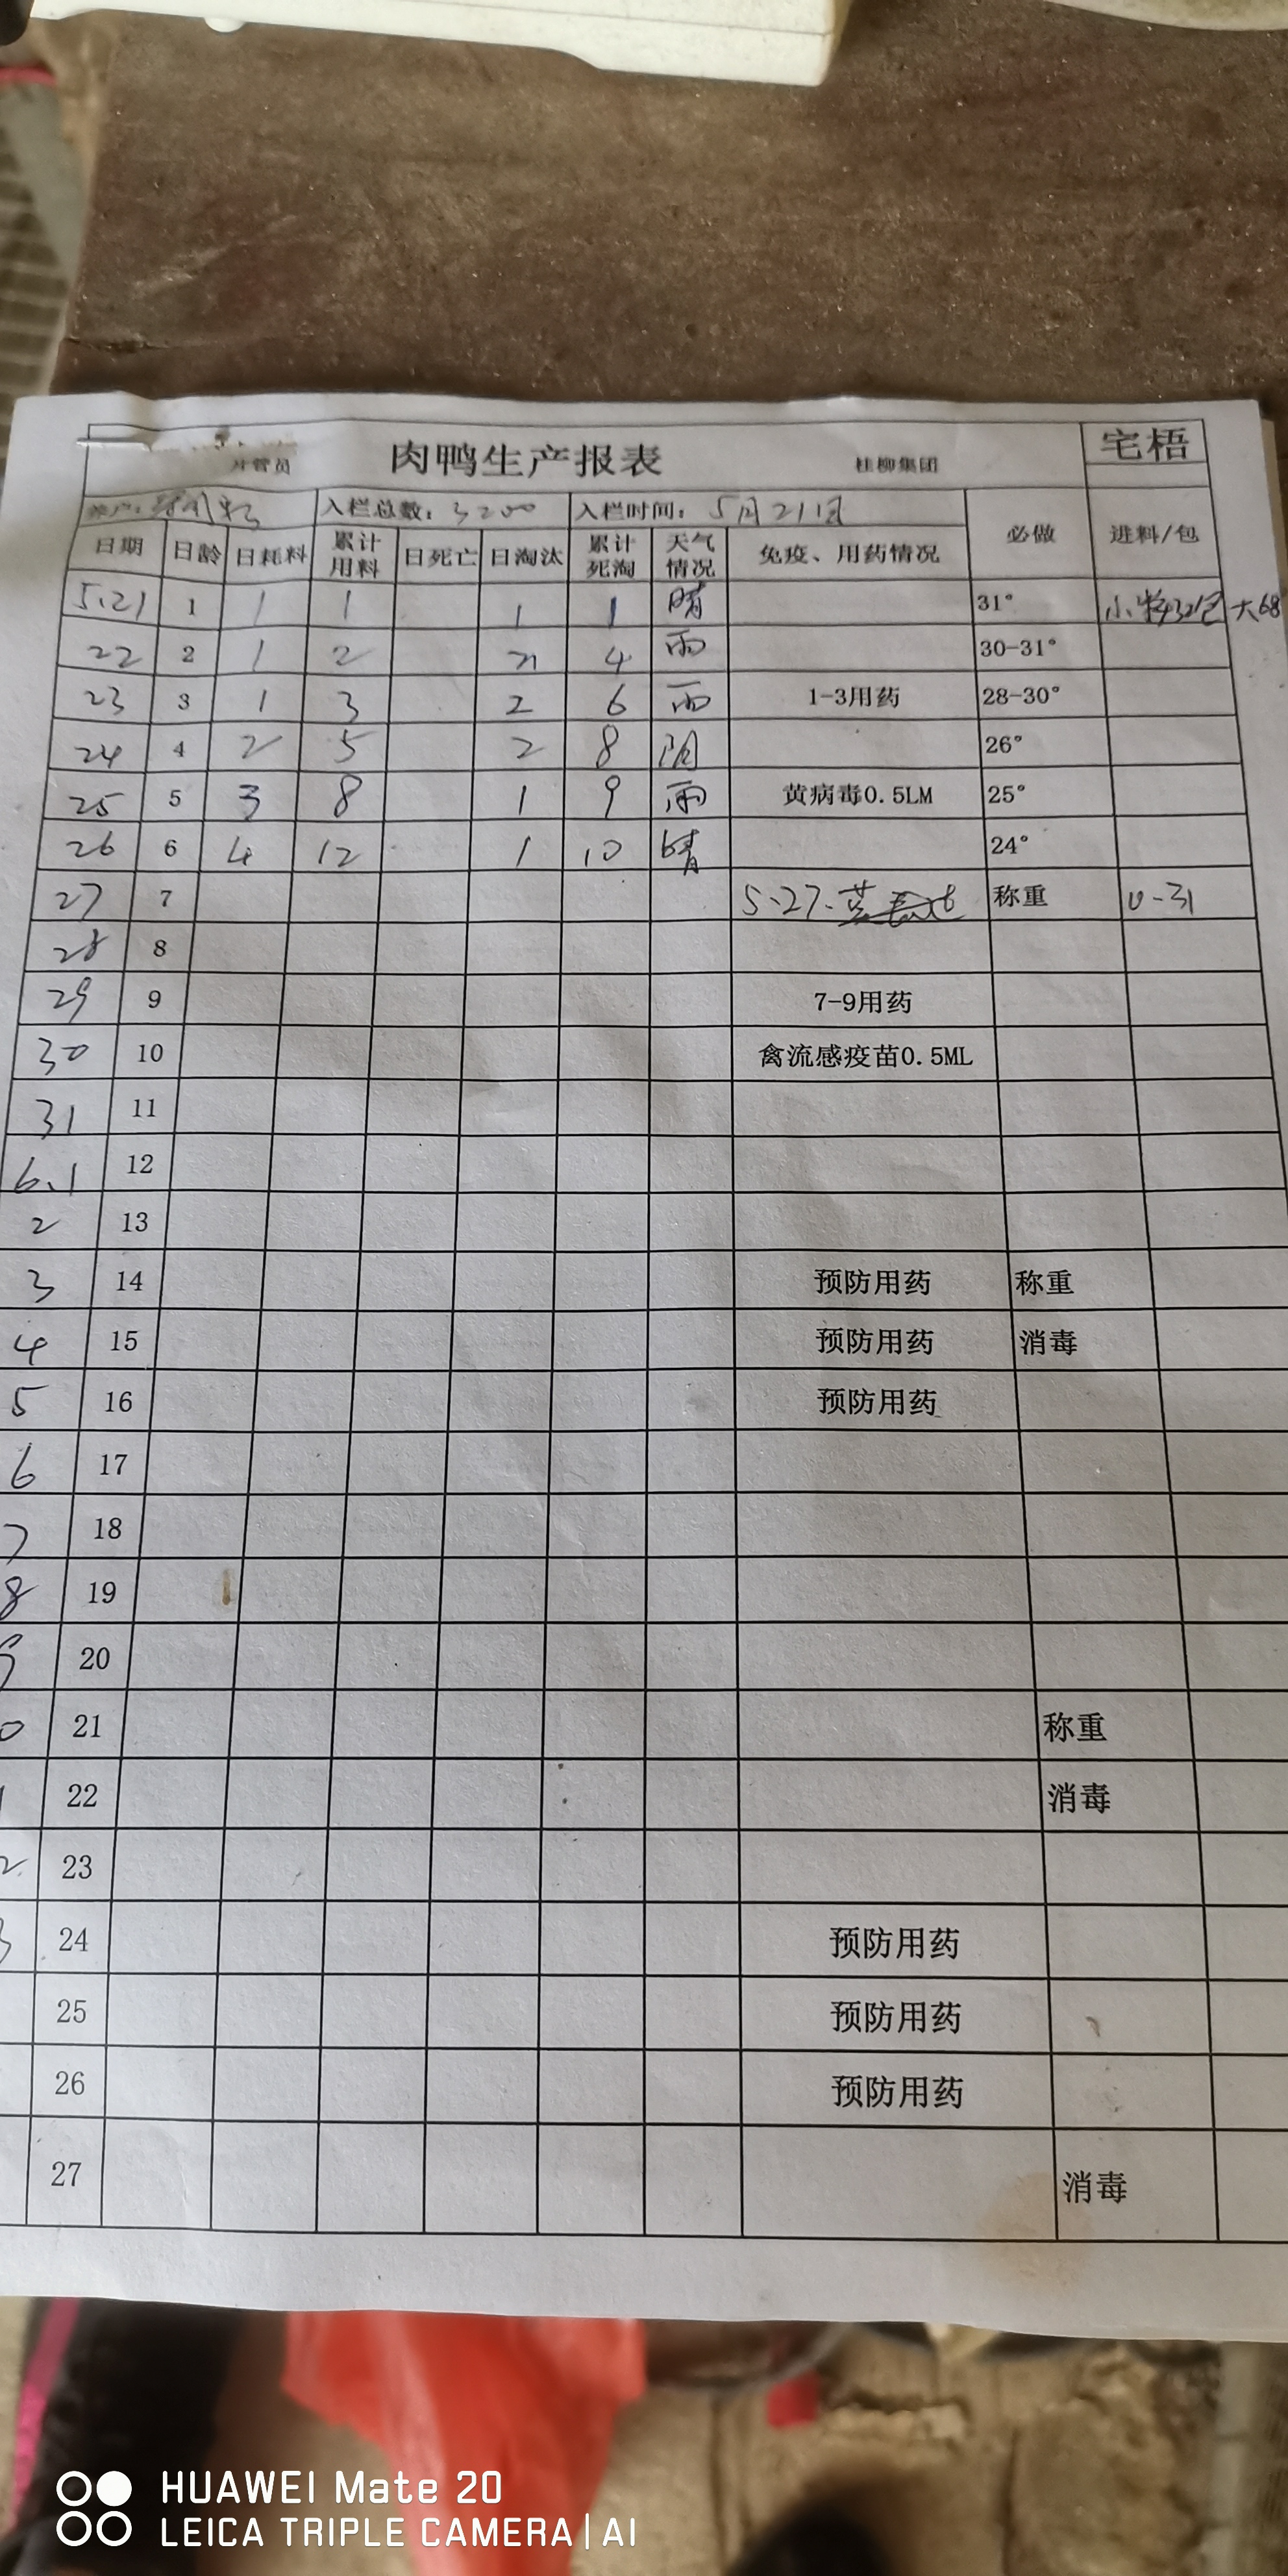 宅梧
肉鸭生产报表 桂柳集团
入栏总数：3200 入栏时间：5月21日
日期 日龄 日耗料 累计用料 日死亡 日淘汰 累计死淘 天气情况 免疫、用药情况 必做 进料/包
5.21 1 1 1 1 1 晴 31° 大68
22 2 1 2 4 雨 30-31°
23 3 1 3 2 6 雨 1-3用药 28-30°
24 4 2 5 2 8 阴 26°
25 5 3 8 1 9 雨 黄病毒0.5LM 25°
26 6 4 12 1 10 晴 24°
27 7 5.27. 称重 0-31
28 8
29 9 7-9用药
30 10 禽流感疫苗0.5ML
31 11
6.1 12
2 13
3 14 预防用药 称重
4 15 预防用药 消毒
5 16 预防用药
6 17
7 18
8 19
9 20
0 21 称重
22 消毒
2 23
3 24 预防用药
25 预防用药
26 预防用药
27 消毒
HUAWEI Mate 20
LEICA TRIPLE CAMERA | AI